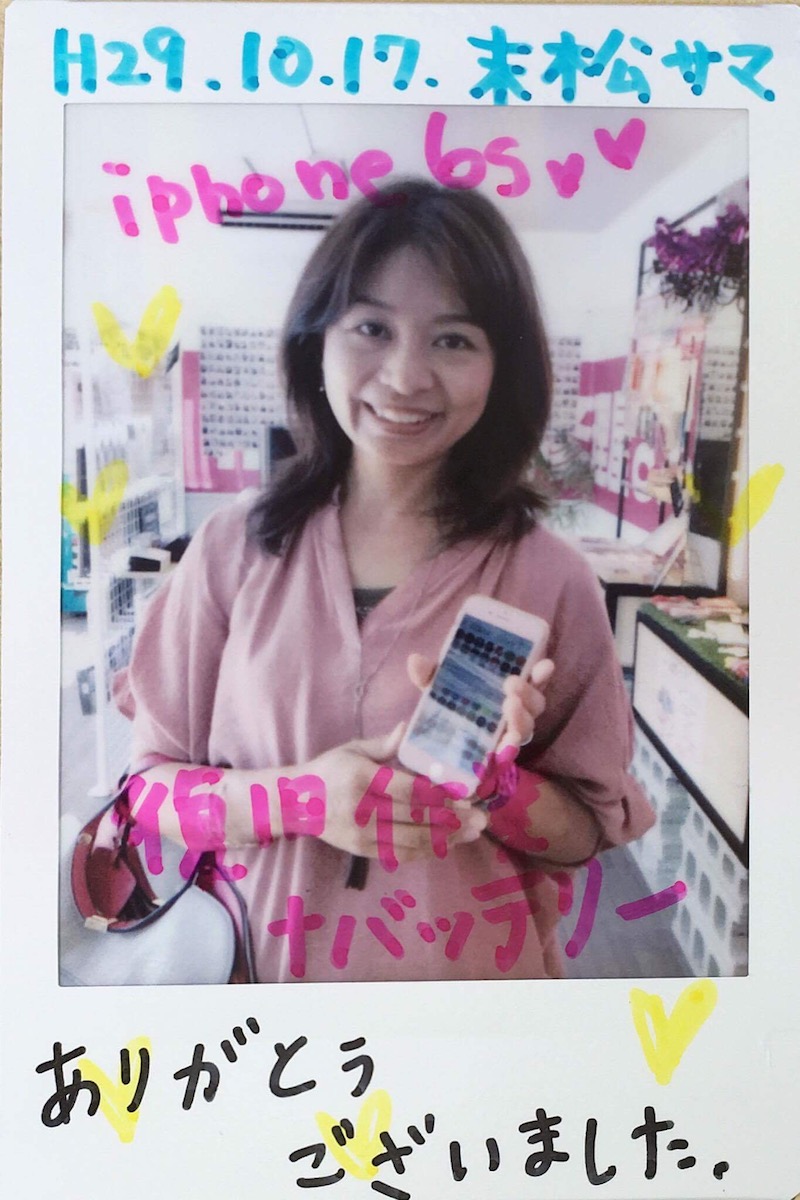 H29.10.17.末松サマ
iphone 6s
復旧作業
+バッテリー
ありがとう
ございました.